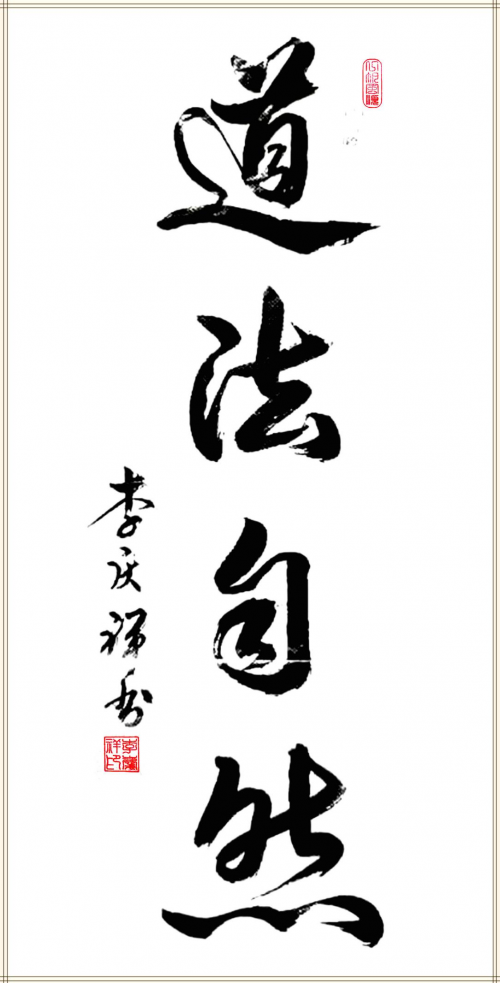 道法自然
李庆祥
李慶
祥印